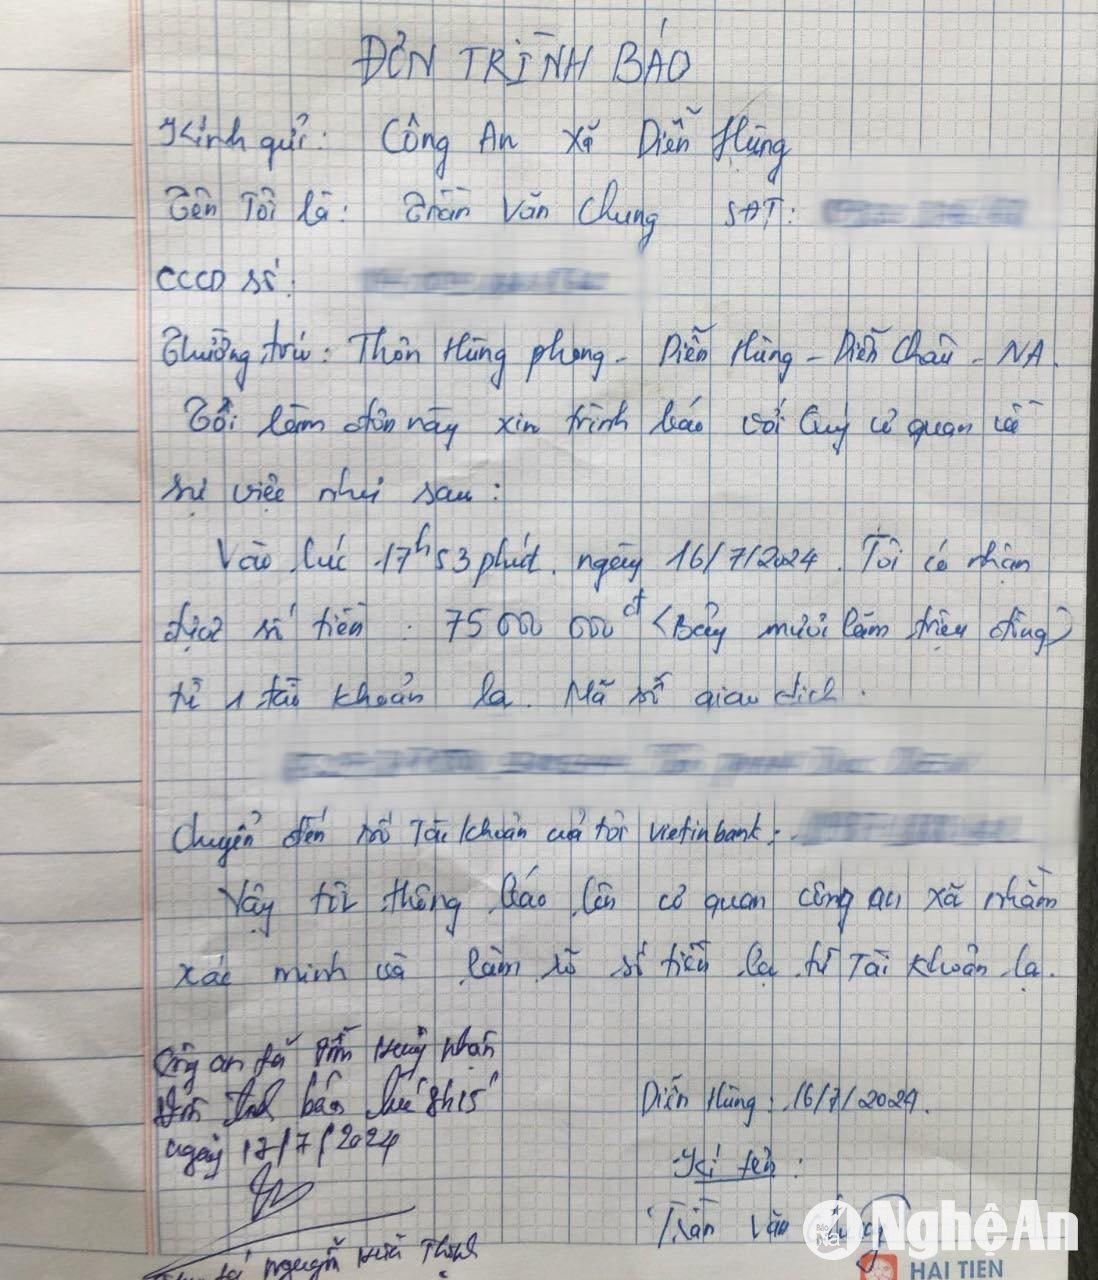 ĐƠN TRÌNH BÁO
Kính gửi: Công An xã Diễn Hùng
Tên Tôi là: Trần Văn Chung SĐT:
CCCD số:
Thường trú: Thôn Hùng phong - Diễn Hùng - Diễn Châu - NA.
Tôi làm đơn này xin trình báo với Quý cơ quan về
sự việc như sau:
Vào lúc 17h 53 phút. ngày 16/7/2024. Tôi có nhận
được số tiền: 75 000 000 đ <Bảy mươi lăm triệu đồng>
từ 1 tài khoản lạ. Mã số giao dịch.
chuyển đến số Tài khoản của tôi vietinbank:
Vậy tôi thông báo lên cơ quan công an xã nhằm
xác minh và làm rõ số tiền lạ từ Tài khoản lạ.
Công an xã Diễn Hùng nhận
Đơn trình báo lúc 8h15'
ngày 17/7/2024
Diễn Hùng: 16/7/2024.
Kí tên:
Trần Văn Chung
Nguyễn Hữu
Báo Nghệ An
HẢI TIẾN